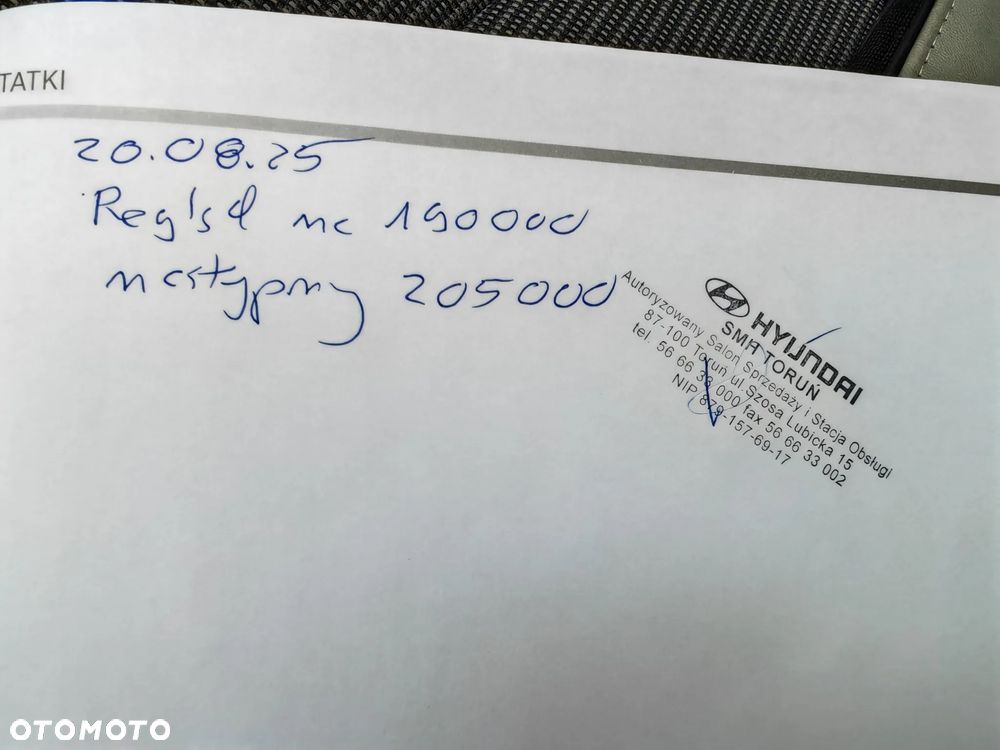 TATKI
20.08.25
na 190000
następny 205000
HYUNDAI
SMH TORUŃ
Autoryzowany Salon Sprzedaży i Stacja Obsługi
87-100 Toruń ul Szosa Lubicka 15
tel. 56 66 33 000 fax 56 66 33 002
NIP 879-157-69-17
OTOMOTO